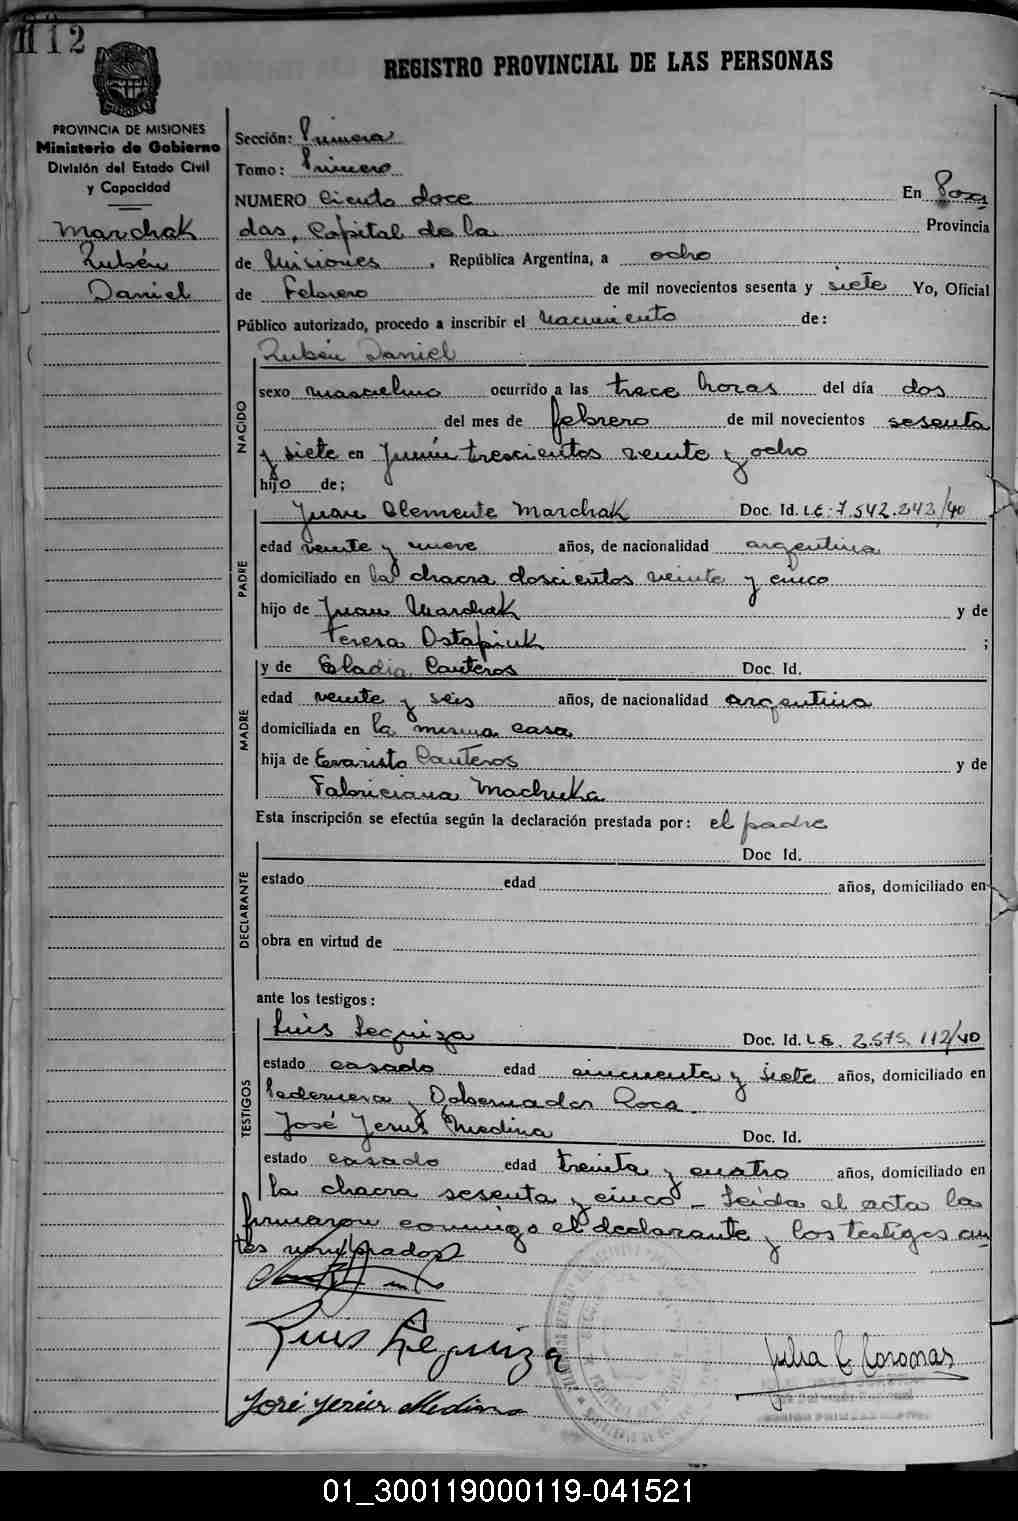 112
REGISTRO PROVINCIAL DE LAS PERSONAS
PROVINCIA DE MISIONES
Ministerio de Gobierno
División del Estado Civil
y Capacidad
Marchak
Rubén
Daniel
Sección: Primera
Tomo: Primero
NUMERO Ciento doce En Posa
das, Capital de la Provincia
de Misiones, República Argentina, a ocho
de Febrero de mil novecientos sesenta y siete Yo, Oficial
Público autorizado, procedo a inscribir el Nacimiento de:
Rubén Daniel
NACIDO
sexo masculino ocurrido a las trece horas del día dos
del mes de febrero de mil novecientos sesenta
y siete en Junín trescientos veinte y ocho
hijo de;
PADRE
Juan Clemente Marchak Doc. Id. L.E: 7.542.242/40
edad veinte y nueve años, de nacionalidad argentina
domiciliado en la chacra doscientos veinte y cinco
hijo de Juan Marchak y de
Teresa Ostapiuk ;
MADRE
y de Eladia Canteros Doc. Id.
edad veinte y seis años, de nacionalidad argentina
domiciliada en la misma casa
hija de Evaristo Canteros y de
Fabriciana Machuka
Esta inscripción se efectúa según la declaración prestada por: el padre
DECLARANTE
Doc Id.
estado edad años, domiciliado en
obra en virtud de
ante los testigos:
TESTIGOS
Luis Leguiza Doc. Id. L.E. 2.575.112/40
estado casado edad cincuenta y siete años, domiciliado en
Pedernera y Gobernador Roca.
José Jesus Medina Doc. Id.
estado casado edad treinta y cuatro años, domiciliado en
la chacra sesenta y cinco - Leída el acta la
firmaron conmigo el declarante y los testigos an
tes nombrados
Luis Leguiza
José Jesús Medina
Julia C. Coronas
01_300119000119-041521